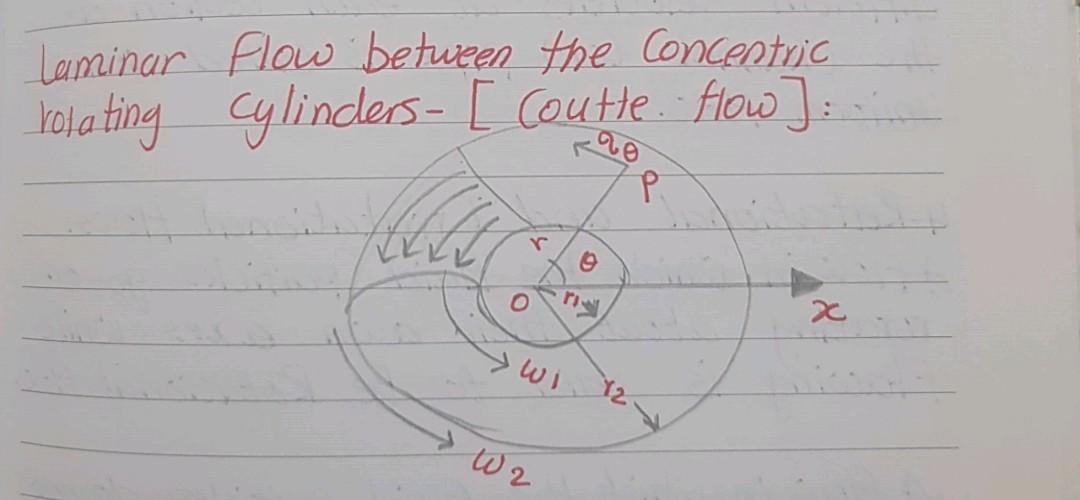 Laminar Flow between the Concentric
rotating Cylinders- [ Coutte flow ]:
qθ
P
r
θ
O
r1
x
ω1
r2
ω2